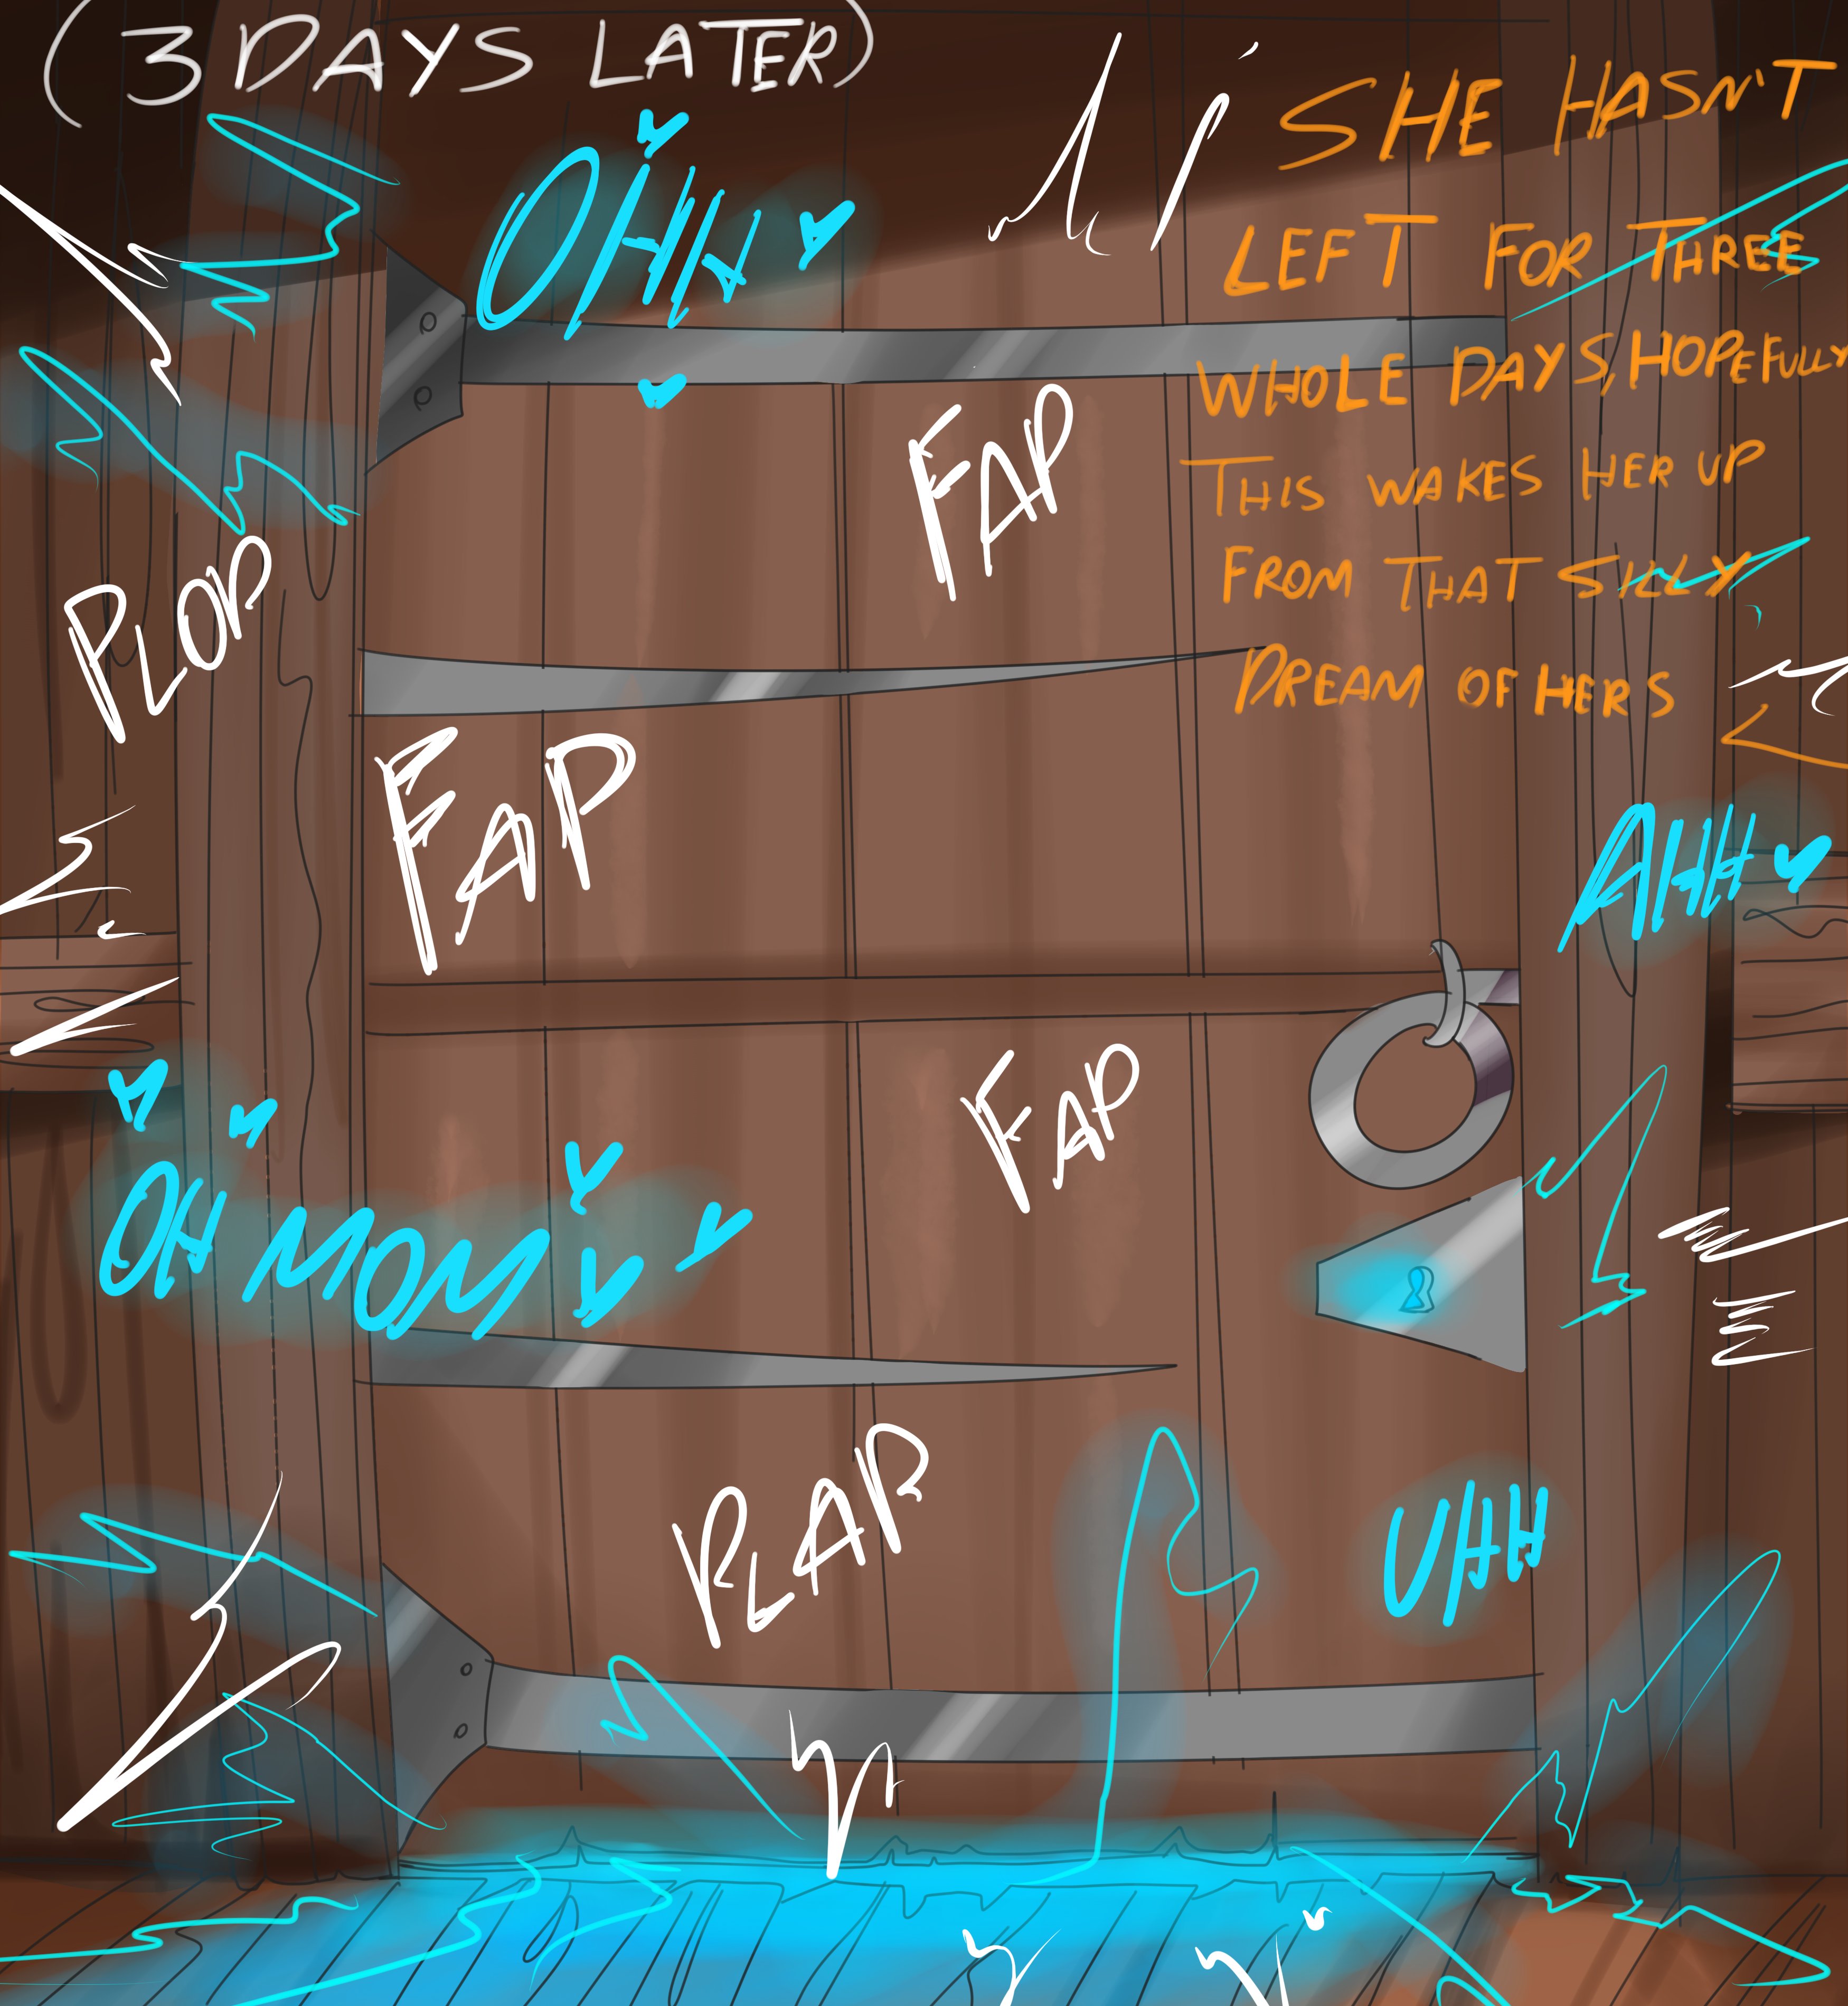 (3 DAYS LATER)
SHE HASN'T
LEFT FOR THREE
WHOLE DAYS, HOPEFULLY
THIS WAKES HER UP
FROM THAT SILLY
DREAM OF HERS
OHHH
FAP
PLOP
FAP
AHHH
FAP
OH MOM
PLAP
UHH